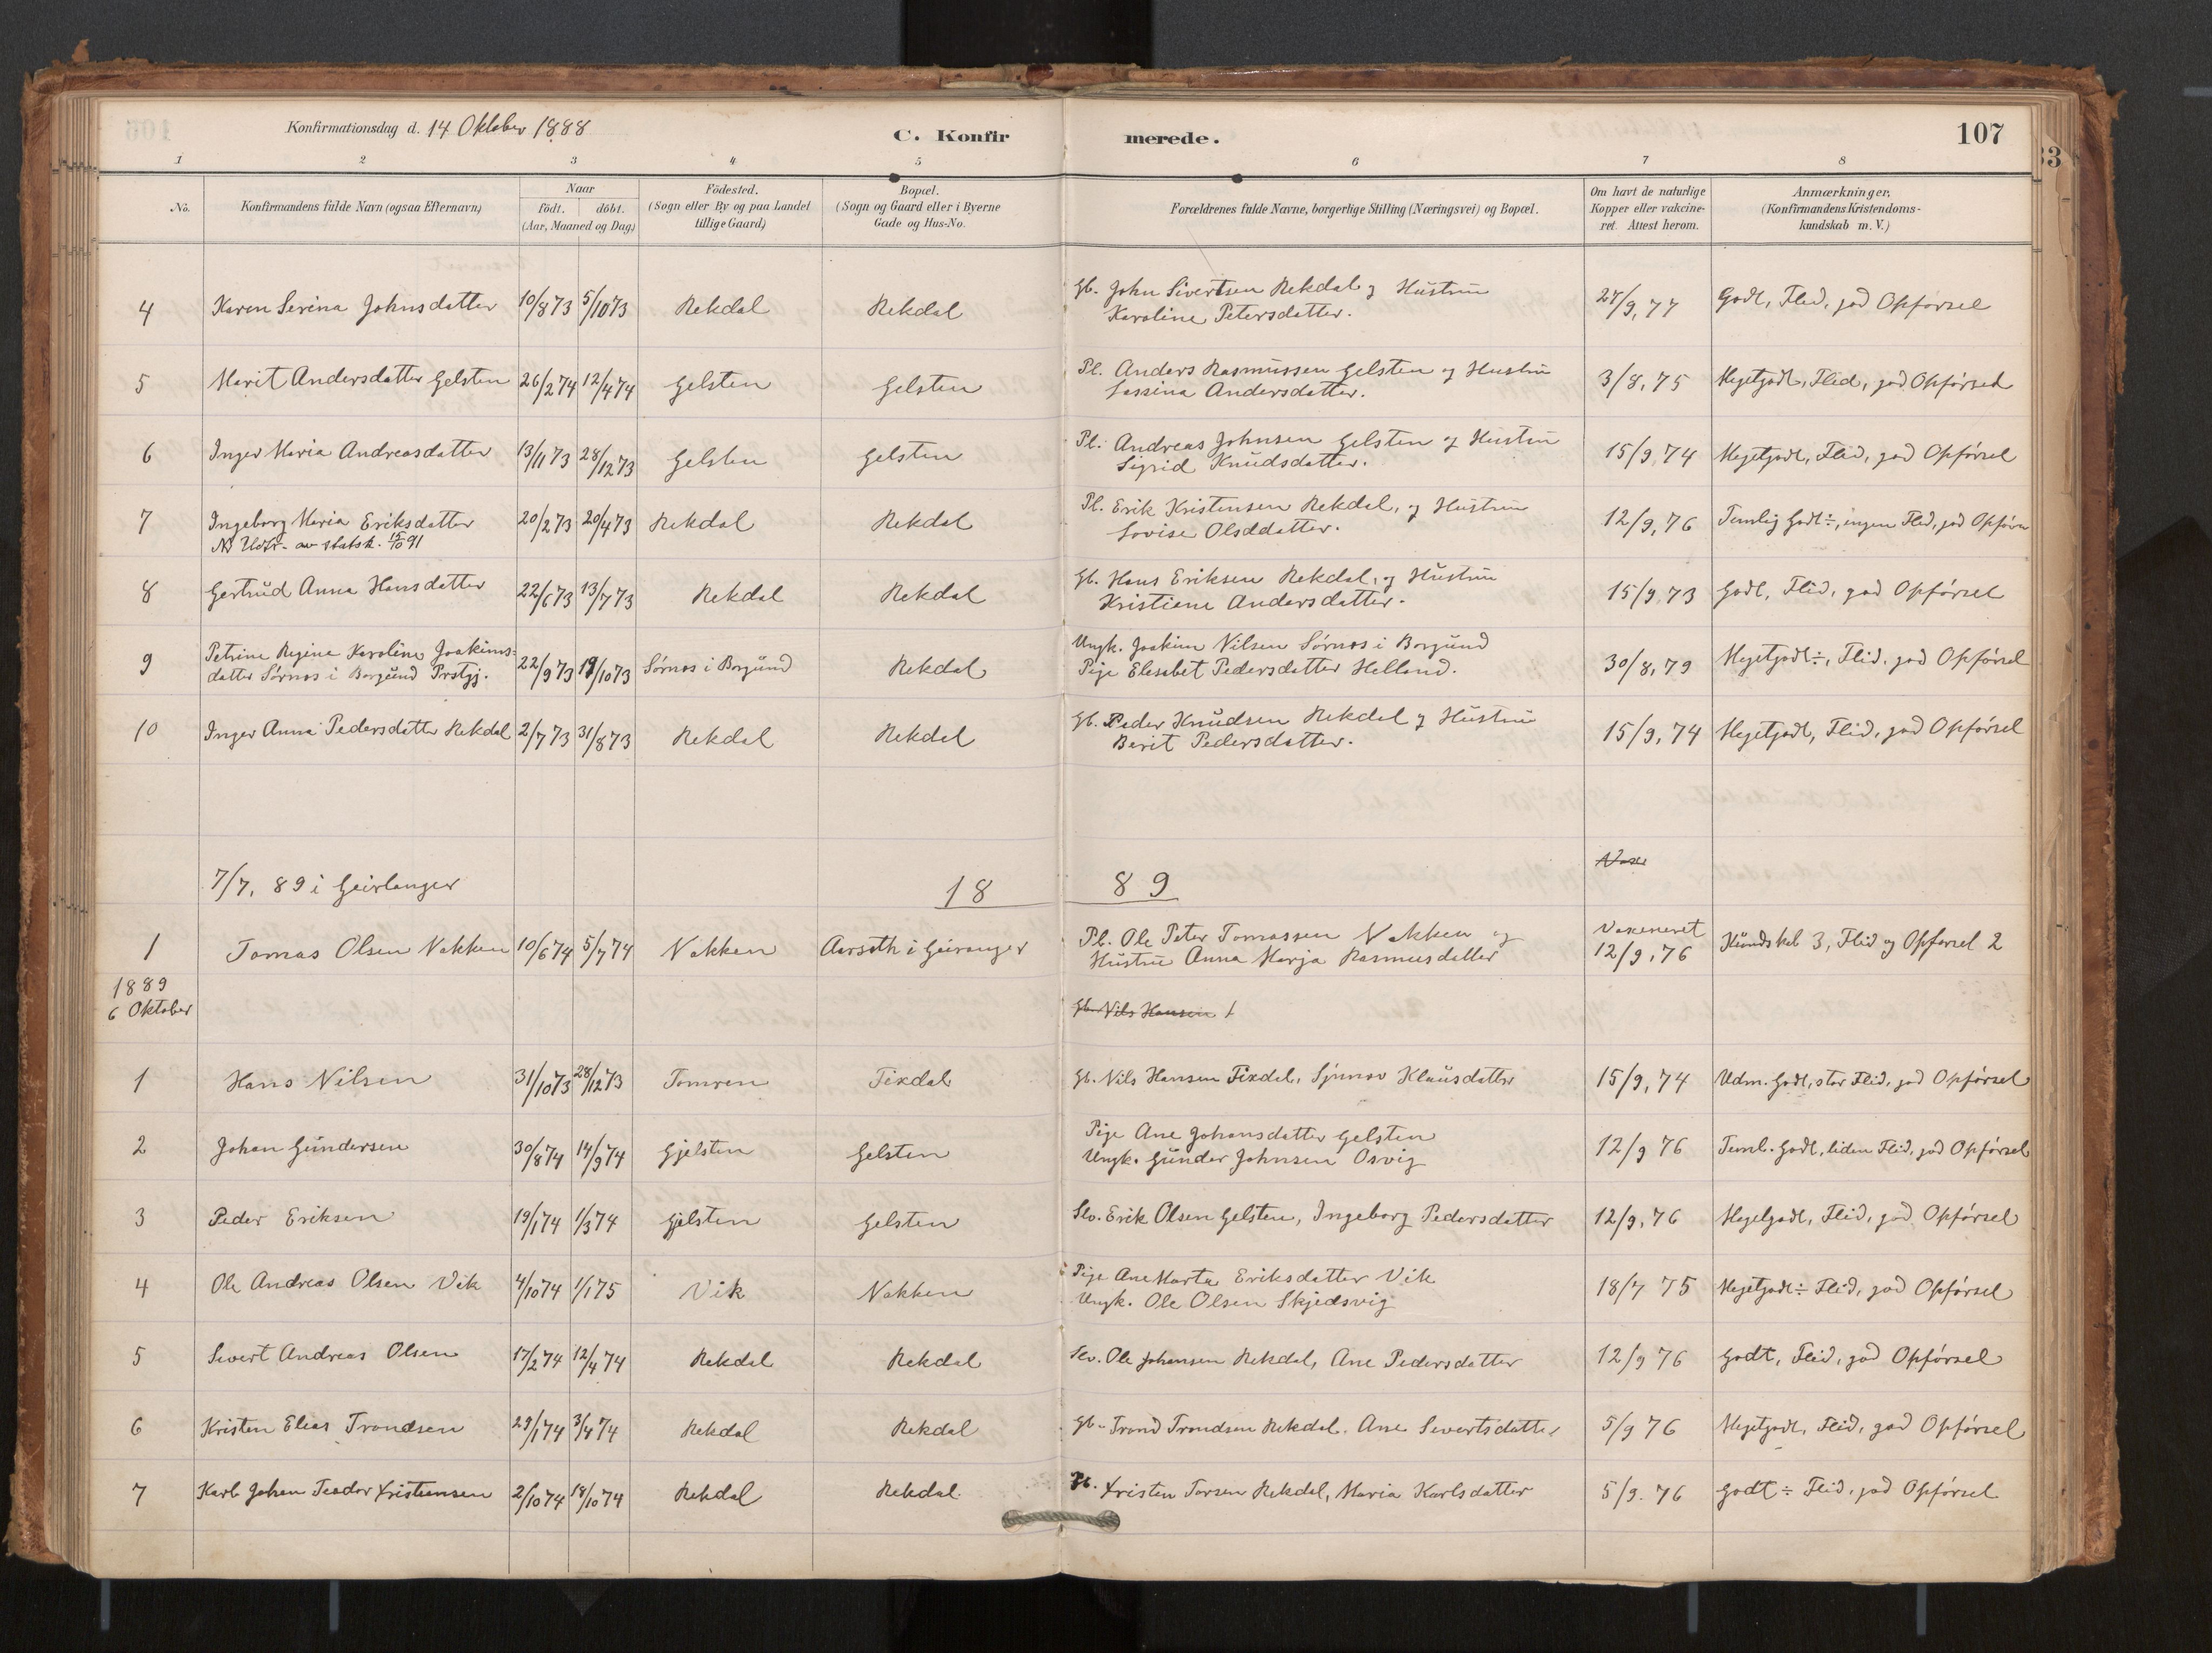 Konfirmationsdag d. 14 Oktober 1888
C. Konfirmerede.
107
1 2 3 4 5 6 7 8
No.
Konfirmandens fulde Navn (ogsaa Efternavn)
Naar
födt. döbt.
(Aar, Maaned og Dag)
Födested.
(Sogn eller By og paa Landet
tillige Gaard)
Bopæl.
(Sogn og Gaard eller i Byerne
Gade og Hus-No.
Forældrenes fulde Navne, borgerlige Stilling (Næringsvei) og Bopæl.
Om havt de naturlige
Kopper eller vakcine-
ret. Attest herom.
Anmærkninger.
(Konfirmandens Kristendoms-
kundskab m. V.)
4 Karen Serina Johnsdatter 10/8 73 5/10 73 Rekdal Rekdal Gb. John Sivertsen Rekdal og Hustru
Karoline Petersdatter. 27/9, 77 Godt, Flid, god Opførsel
5 Marit Andersdatter Gelsten 26/2 74 12/4 74 Gelsten Gelsten Pl. Anders Rasmussen Gelsten og Hustru
Sassina Andersdatter. 3/8, 75 Megetgodt, Flid, god Opførsel
6 Inger Maria Andreasdatter 13/11 73 28/12 73 Gelsten Gelsten Pl. Andreas Johnsen Gelsten og Hustru
Sigrid Knudsdatter. 15/9, 74 Megetgodt, Flid, god Opførsel
7 Ingeborg Maria Eriksdatter 20/2 73 20/4 73 Rekdal Rekdal Pl. Erik Kristensen Rekdal, og Hustru
NB Udtr. av statsk. 15/10 91
Lovise Olsddatter. 12/9, 76 Temlig Godt ÷, ingen Flid, god Opførs
8 Gertrud Anna Hansdatter 22/6 73 13/7 73 Rekdal Rekdal Gb. Hans Eriksen Rekdal, og Hustru
Kristiene Andersdatter. 15/9, 73 Godt, Flid, god Opførsel
9 Petrine Regine Karoline Joakims-
datter Sørnes i Borgund Prstgj. 22/9 73 19/10 73 Sørnes i Borgund Rekdal Ungk. Joakim Nilsen Sørnes i Borgund
Pige Elesabet Pedersdatter Helland. 30/8, 79 Megetgodt ÷, Flid, god Opførsel
10 Inger Anna Pedersdatter Rekdal 2/7 73 31/8 73 Rekdal Rekdal Gb. Peder Knudsen Rekdal og Hustru
Berit Pedersdatter. 15/9, 74 Megetgodt, Flid, god Opførsel
7/7, 89 i Geirlanger
1889
Vax
1 Tomas Olsen Nakken 10/6 74 5/7 74 Nakken Aarseth i Geiranger Pl. Ole Peter Tomassen Nakken og
Hustru Anna Marja Rasmusdatter Vaxeneret
12/9, 76 Kundskab 3, Flid og Opførsel 2
1889
6 Oktober
Gb. Nils Hansen
1 Hans Nilsen 31/10 73 28/12 73 Tomren Fixdal Gb. Nils Hansen Fixdal, Sjunov Klausdatter 15/9, 74 Udm. Godt, stor Flid, god Opførsel
2 Johan Gundersen 30/8 74 14/9 74 Gjelsten Gelsten Pige Ane Johansdatter Gelsten
Ungk. Gunder Johnsen Osvig 12/9 76 Teml. Godt, liden Flid, god Opførsel
3 Peder Eriksen 19/1 74 1/3 74 Gjelsten Gelsten Slv. Erik Olsen Gelsten, Ingeborg Pedersdatter 12/9, 76 Megetgodt, Flid, god Opførsel
4 Ole Andreas Olsen Vik 4/10 74 1/1 75 Vik Nakken Pige Ane Marta Eriksdatter Vik
Ungk. Ole Olsen Skjedsvig 18/7 75 Megetgodt ÷ Flid, god Opførsel
5 Sivert Andreas Olsen 17/2 74 12/4 74 Rekdal Rekdal Slv. Ole Johansen Rekdal, Ane Pedersdatter 12/9 76 Godt, Flid, god Opførsel
6 Kristen Elias Trondsen 29/1 74 3/4 74 Rekdal Rekdal Gb. Trond Trondsen Rekdal, Ane Sivertsdatter 5/9 76 Megetgodt, Flid, god Opførsel
7 Karl Johan Teodor Kristensen 2/10 74 18/10 74 Rekdal Rekdal Kristen Torsen Rekdal, Maria Karlsdatter 5/9. 76 Godt ÷ Flid, god Opførsel